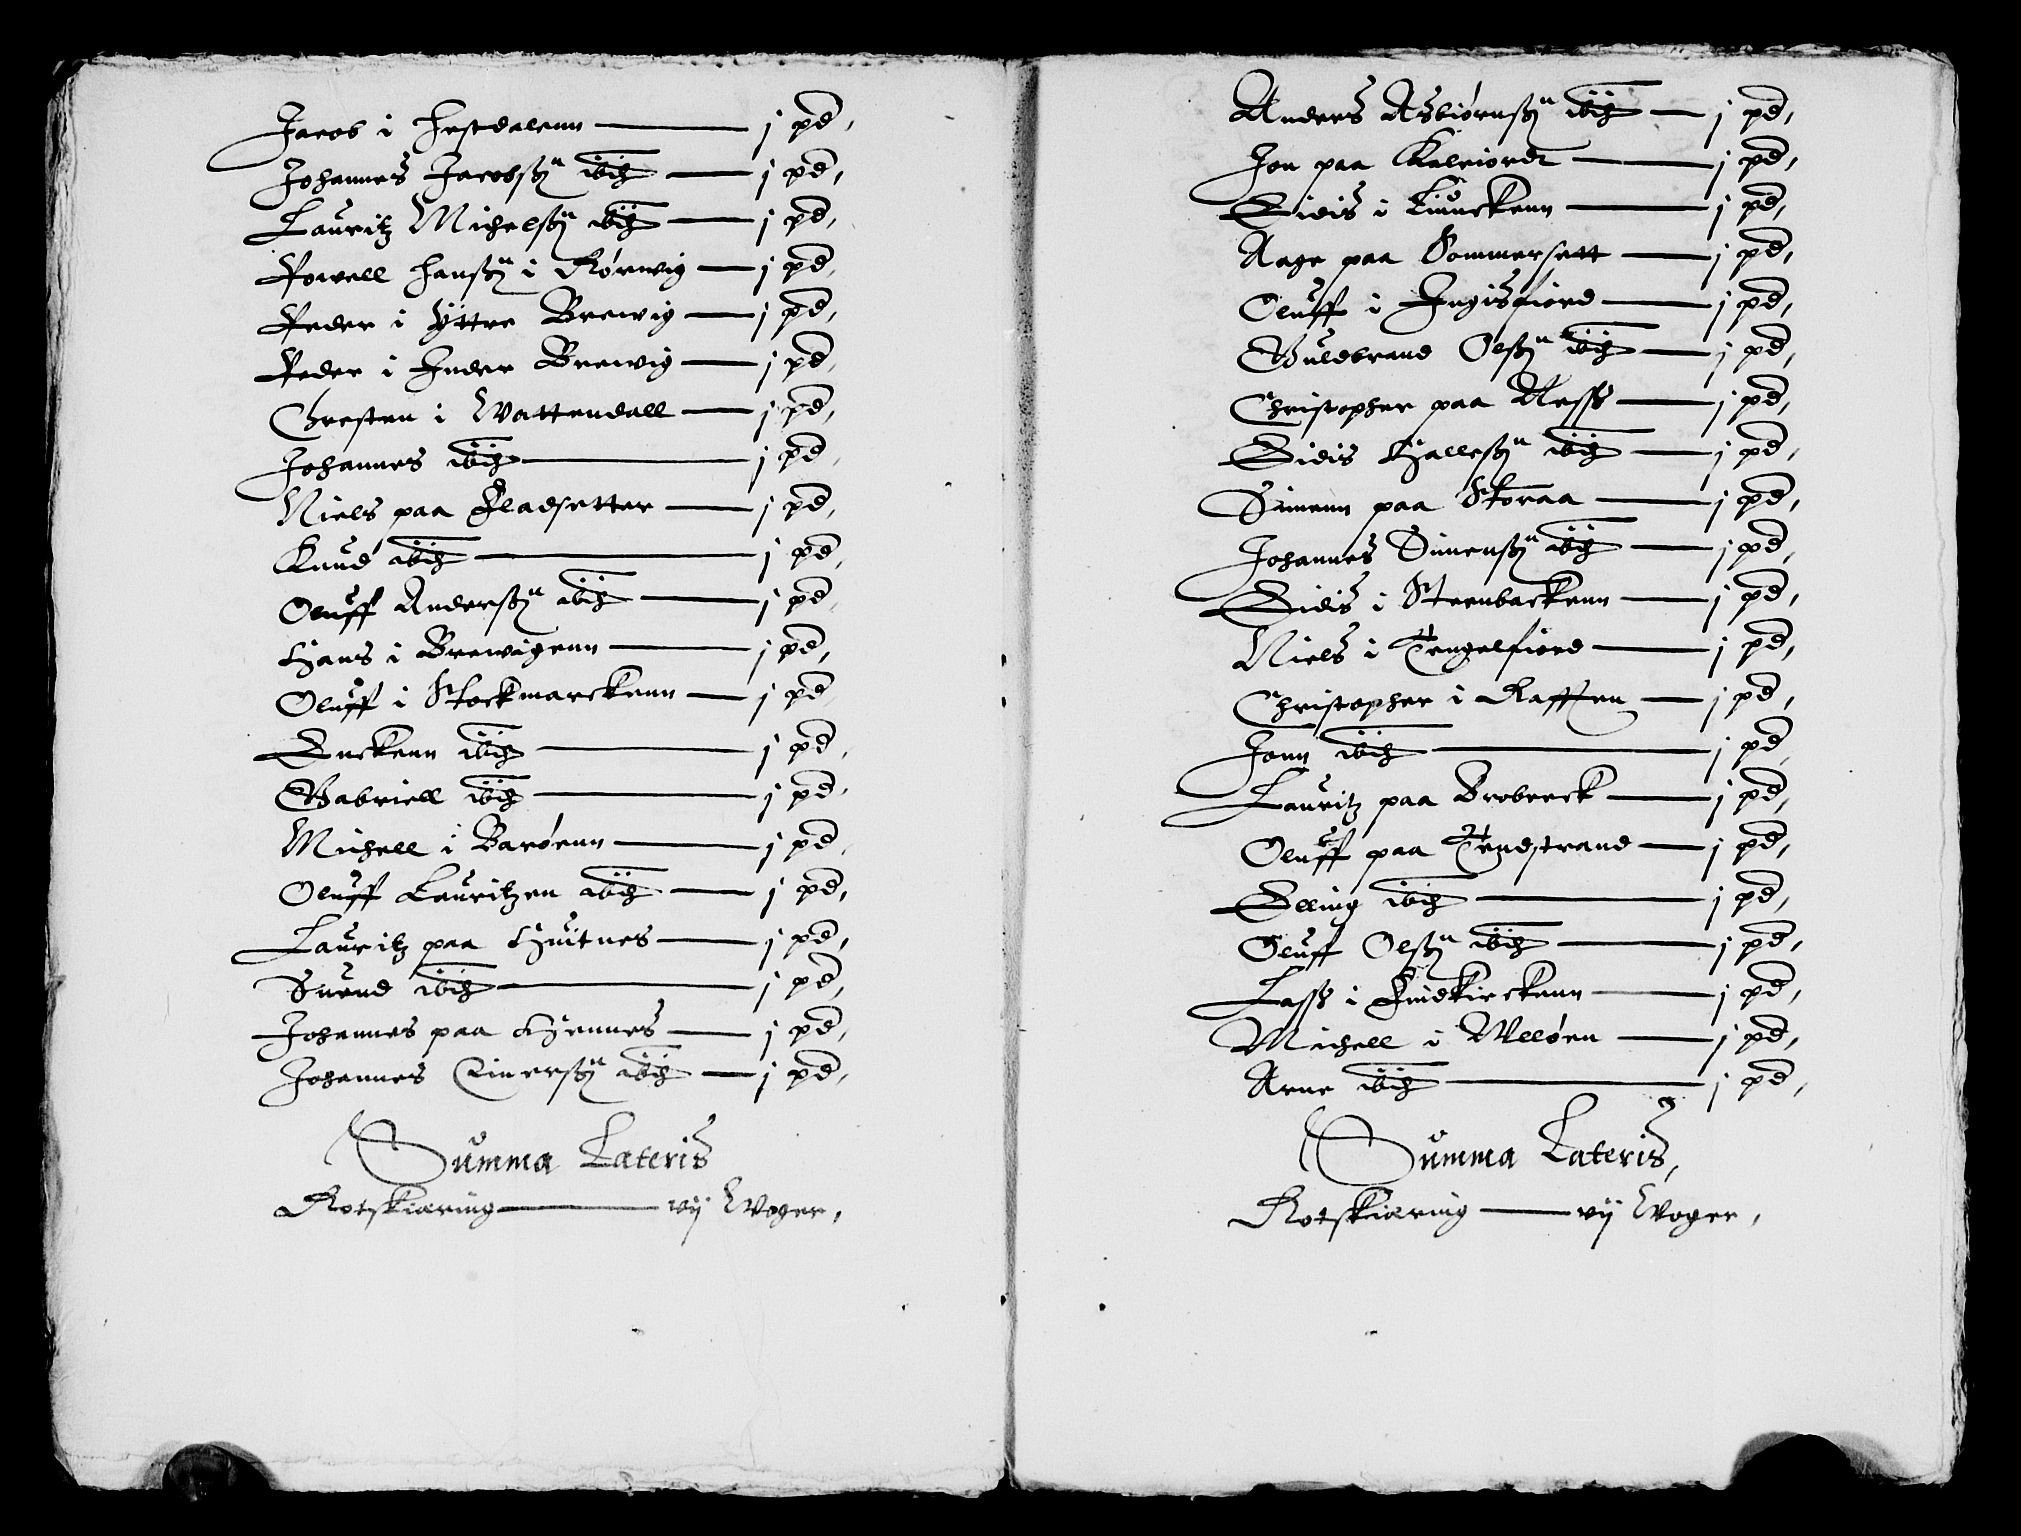 Jacob i Hestdalenn — j pd,
Johannes Jacobsßn ibid — j pd,
Lauritz Michelsßn ibid — j pd,
Powell Hansßn i Rørwig — j pd,
Peder i Yttre Brewig — j pd,
Peder i Inder Brewig — j pd,
Chresten i Wattendall — j pd,
Johannes ibid — j pd,
Niels paa Fladsetter — j pd,
Knud ibid — j pd,
Oluff Andersßn ibid — j pd,
Hans i Brewigenn — j pd,
Oluff i Stockmarckenn — j pd,
Enckenn ibid — j pd,
Gabriell ibid — j pd,
Michell i Barøenn — j pd,
Oluff Lauritzen ibid — j pd,
Lauritz paa Huitnes — j pd,
Suend ibid — j pd,
Johannes paa Hennes — j pd,
Johannes Einersßn ibid — j pd,
Summa Lateris
Rotskiæring — vij Woger,
Anders Asbiørnsßn ibid — j pd,
Jon paa Kalfiordt — j pd,
Eidis i — j pd,
Aage paa Sommersett — j pd,
Oluff i Ingisfiord — j pd,
Guldbrand Olsßn ibid — j pd,
Christopher paa Næsse — j pd,
Eidis Hallesßn ibid — j pd,
Simenn paa Storaa — j pd,
Johannes Simensßn ibid — j pd,
Eidis i Steenbackenn — j pd,
Niels i Tengelfiord — j pd,
Christopher i Rafften — j pd,
Jonn ibid — j pd
Lauritz paa Brobeck — j pd,
Oluff paa Tendstrand — j pd,
Elling ibid — j pd,
Oluff Olsßn ibid — j pd,
Lasse i Findkirckenn — j pd,
Michell i Wlløen — j pd,
Arne ibid — j pd,
Summa Lateris,
Rotskiæring — vij Woger,